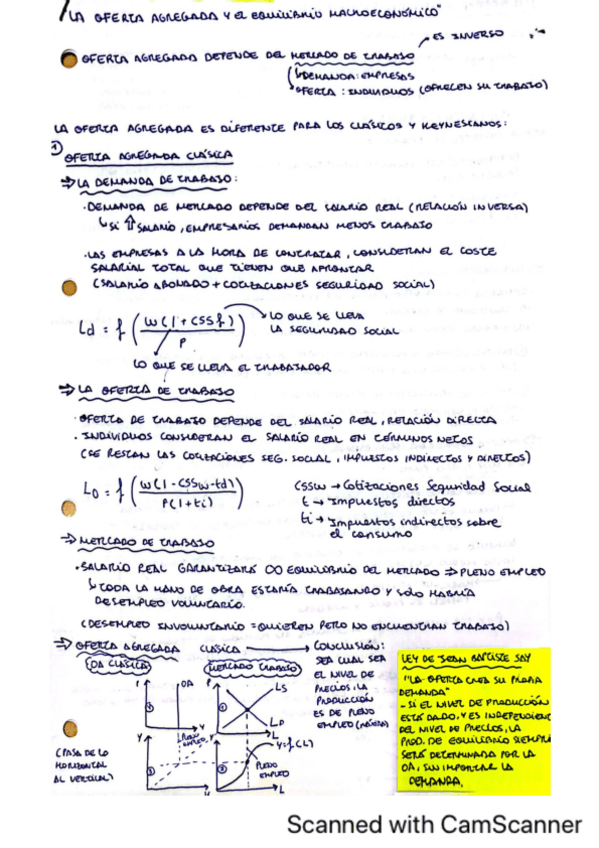 "LA OFERTA AGREGADA Y EL EQUILIBRIO MACROECONÓMICO"
ES INVERSO
OFERTA AGREGADA DEPENDE DEL MERCADO DE TRABAJO
↳DEMANDA: EMPRESAS
↳OFERTA: INDIVIDUOS (OFRECEN SU TRABAJO)
LA OFERTA AGREGADA ES DIFERENTE PARA LOS CLÁSICOS Y KEYNESIANOS:
① OFERTA AGREGADA CLÁSICA
⇒ LA DEMANDA DE TRABAJO:
· DEMANDA DE MERCADO DEPENDE DEL SALARIO REAL (RELACIÓN INVERSA)
↳ SI ⇑ SALARIO, EMPRESARIOS DEMANDAN MENOS TRABAJO
· LAS EMPRESAS A LA HORA DE CONTRATAR, CONSIDERAN EL COSTE
SALARIAL TOTAL QUE TIENEN QUE AFRONTAR
(SALARIO ABONADO + COTIZACIONES SEGURIDAD SOCIAL)
Ld = f (W(1+CSSf) / P)
LO QUE SE LLEVA
LA SEGURIDAD SOCIAL
LO QUE SE LLEVA EL TRABAJADOR
⇒ LA OFERTA DE TRABAJO
· OFERTA DE TRABAJO DEPENDE DEL SALARIO REAL, RELACIÓN DIRECTA
· INDIVIDUOS CONSIDERAN EL SALARIO REAL EN TÉRMINOS NETOS
(SE RESTAN LAS COTIZACIONES SEG. SOCIAL, IMPUESTOS INDIRECTOS Y DIRECTOS)
Lo = f (W(1-CSSw-td) / P(1+ti))
CSSw → Cotizaciones Seguridad Social
t → Impuestos directos
ti → Impuestos indirectos sobre
el consumo
⇒ MERCADO DE TRABAJO
· SALARIO REAL GARANTIZARÁ EQUILIBRIO DEL MERCADO ⇒ PLENO EMPLEO
↳ TODA LA MANO DE OBRA ESTARÍA TRABAJANDO Y SOLO HABRÍA
DESEMPLEO VOLUNTARIO.
(DESEMPLEO INVOLUNTARIO = QUIEREN PERO NO ENCUENTRAN TRABAJO)
⇒ OFERTA AGREGADA CLÁSICA → CONCLUSIÓN:
OA CLÁSICA
MERCADO TRABAJO
SEA CUAL SEA
EL NIVEL DE
PRECIOS, LA
PRODUCCIÓN
ES DE PLENO
EMPLEO
OA
Y
PLENO
EMPLEO
LS
LD
L
Y=f(L)
PLENO
EMPLEO
L
(PASA DE LO
HORIZONTAL
AL VERTICAL)
LEY DE JEAN BAPTISTE SAY
"LA OFERTA CREA SU PROPIA
DEMANDA"
- SI EL NIVEL DE PRODUCCIÓN
ESTÁ DADO, Y ES INDEPENDIENTE
DEL NIVEL DE PRECIOS, LA
PROD. DE EQUILIBRIO SIEMPRE
SERÁ DETERMINADA POR LA
OA, SIN IMPORTAR LA
DEMANDA.
Scanned with CamScanner